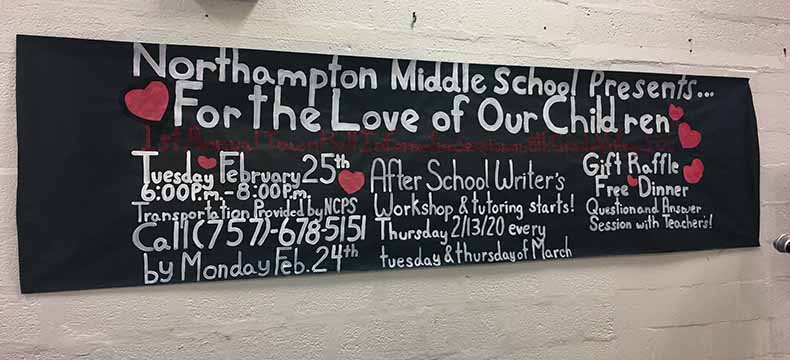 Northampton Middle School Presents...
For the Love of Our Children
1st Annual Town Hall
Tuesday February 25th
6:00P.m.-8:00P.m.
Transportation Provided by NCPS
Call (757)-678-5151
by Monday Feb. 24th
After School Writer's
Workshop & tutoring starts!
Thursday 2/13/20 every
tuesday & thursday of March
Gift Raffle
Free Dinner
Question and Answer
Session with Teachers!